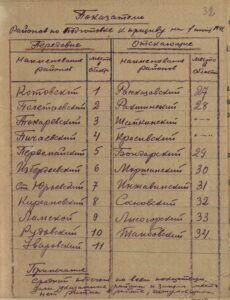 32
Показатели
Районов по подготовке к призыву на 1 июня 1941
Передовые Отстающие
Наименование районов Место в области Наименование районов Место в области
Токовский 1 Рассказовский 27
Полетаевский 2 Ракшинский 28
Токаревский 3 Шапкинский —
Пичаевский 4 Красивский —
Первомайский 5 Бондарский 29
Избердеевский 6 Моршанский 30
Ст Юрьевский 7 Инжавинский 31
Кирсановский 8 Сосновский 32
Ламской 9 Лысогорский 33
Рудовский 10 Тамбовский 34
Уваровский 11
Примечание